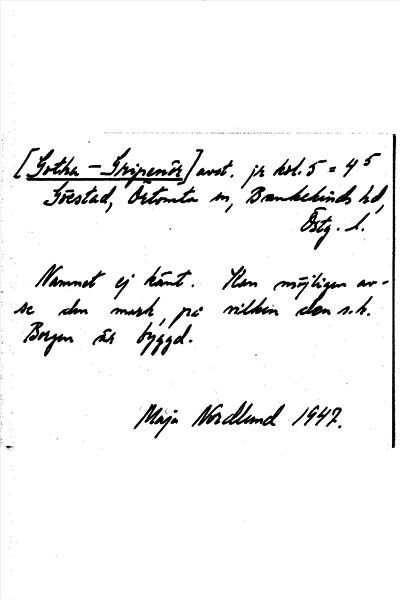 [Gotha - Gripenös] avst. jr kol. 5 = 4 5
Görstad, Örtomta sn, Bankekinds hd,
Östg. l.
Namnet ej känt. Kan möjligen av-
se den mark, på vilken den s.k.
Borgen är byggd.
Maja Nordlund 1947.